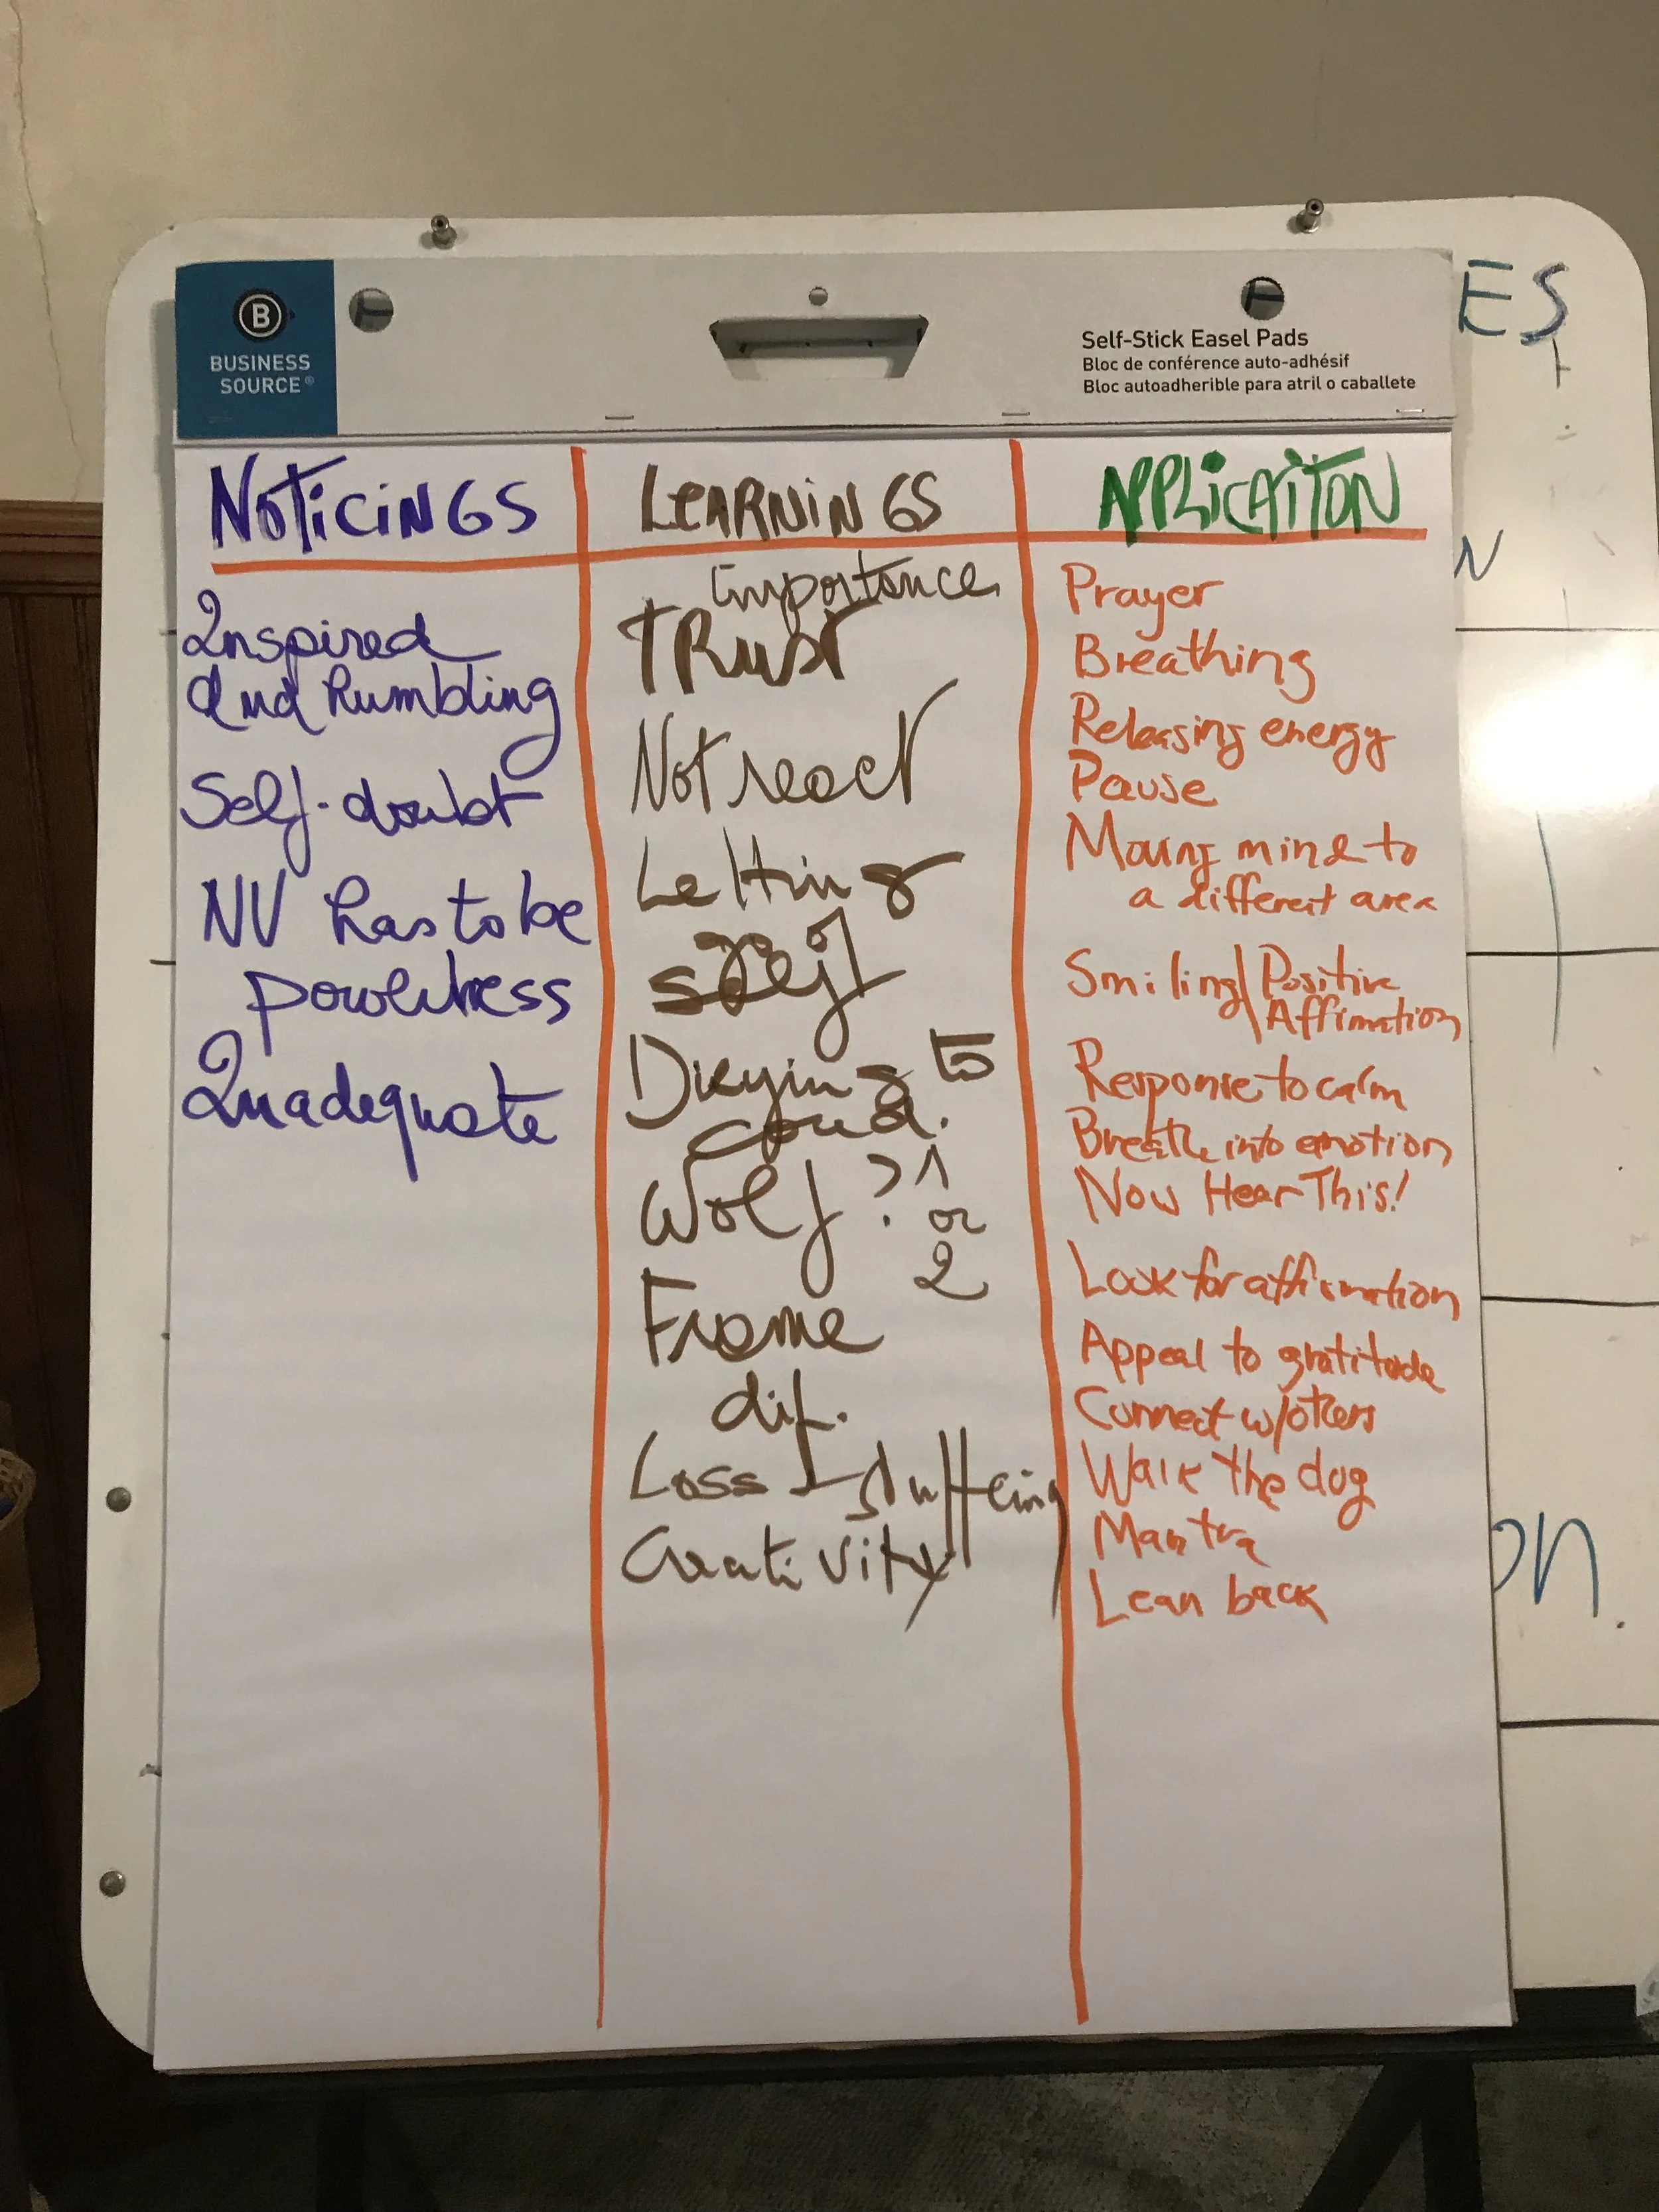 B
BUSINESS
SOURCE®
Self-Stick Easel Pads
Bloc de conférence auto-adhésif
Bloc autoadherible para atril o caballete
ES
N
on.
NOTICINGS
Inspired
and humbling
Self-doubt
NV has to be
Inadequate
LEARNINGS
Importance
TRUST
Not react
Letting
self
to
coud.
Wolf? 1
or
2
Frame
dif.
Loss
Creativity
APPLICAITON
Prayer
Breathing
Releasing energy
Pause
Moving mind to
a different area
Smiling/Positive
Affirmation
Response to calm
Breathe into emotion
Now Hear This!
Look for affirmation
Appeal to gratitude
Connect w/others
Walk the dog
Mantra
Lean back